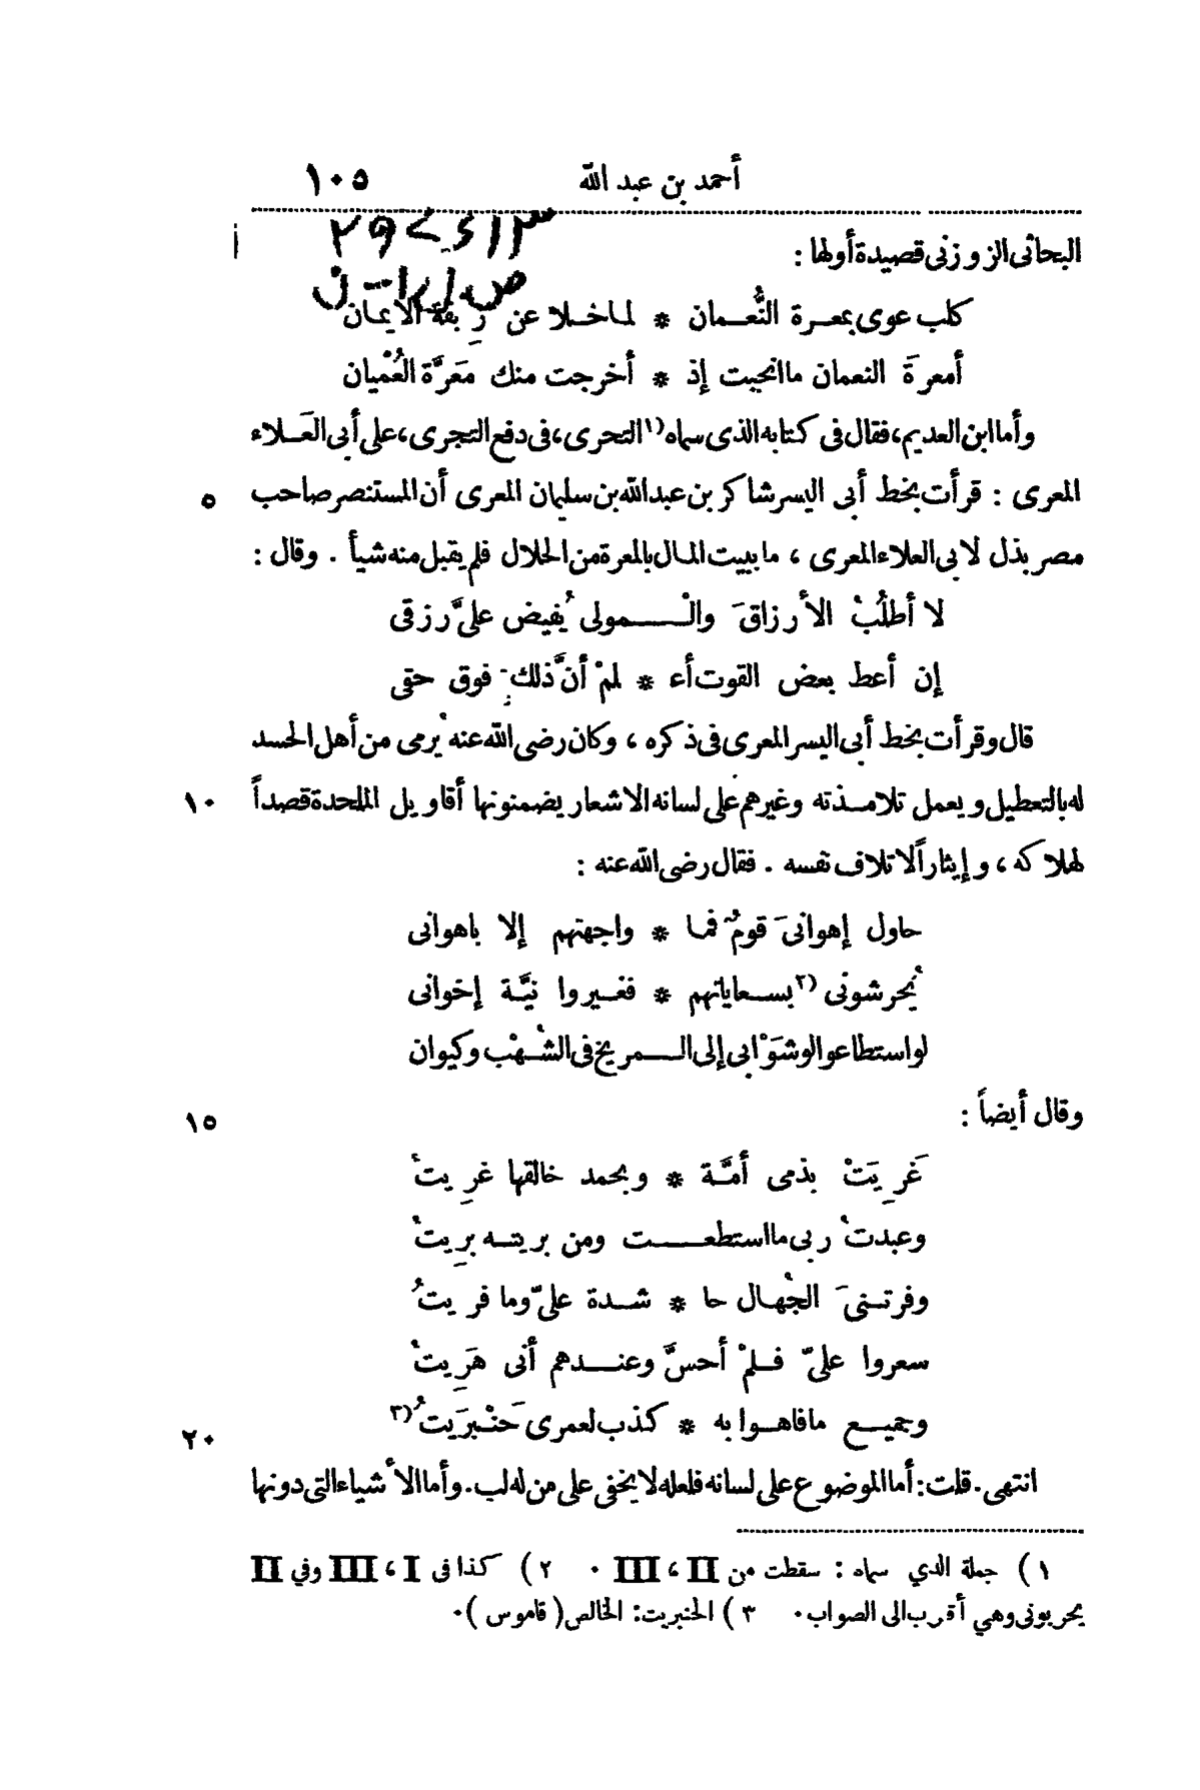 أحمد بن عبد الله ١٠٥
البحاثى الزوزنى قصيدة أولها :
كلب عوى بمعرة النُّعمان * لما خلا عن رِبقة الايمان
أمعرةَ النعمان ما انجبت إذ * أخرجت منك مَعرَّة العُمْيان
وأما ابن العديم، فقال فى كتابه الذى سماه (١ التحرى، فى دفع التجرى، على أبى العَلاء
المعرى : قرأت بخط أبى اليسر شاكر بن عبد الله بن سليمان المعرى أن المستنصر صاحب ٥
مصر بذل لابى العلاء المعرى ، ما ببيت المال بالمعرة من الحلال فلم يقبل منه شيأ . وقال :
لا أطلُبْ الأرزاقَ والْمولى يُفيض علىَّ رزقى
إن أعط بعض القوت أء * لمْ أنَّ ذلك فوق حقى
قال وقرأت بخط أبى اليسر المعرى فى ذكره ، وكان رضى الله عنه يُرمى من أهل الحسد
له بالتعطيل ويعمل تلامذته وغيرهم على لسانه الاشعار يضمنونها أقاويل الملحدة قصداً ١٠
لهلاكه ، وإيثاراً لاتلاف نفسه . فقال رضى الله عنه :
حاول إهوانىَ قومٌ فما * واجهتهم إلا باهوانى
يُحرشونى (٢ بسعاياتهم * فغيروا نيَّة إخوانى
لو استطاعوا لوشَوْا بى إلى المريخ فى الشُهْب وكيوان
وقال أيضاً : ١٥
غَرِيَتْ بذمى أمَّة * وبحمد خالقها غرِيتُ
وعبدتُ ربى ما استطعت ومن بريته برِيتُ
وفرتنىَ الجُهال حا * شدة علىّ وما فريتُ
سعروا علىّ فلمْ أحسَّ وعندهم أنى هَرِيتُ
وجميع ما فاهوا به * كذب لعمرى حَنْبرَيتُ (٣
٢٠
انتهى. قلت: أما الموضوع على لسانه فلعله لا يخفى على من له لب. وأما الأشياء التى دونها
١) جملة الذي سماه : سقطت من II ، III ٠ ٢) كذا فى I ، III وفي II
يحربونى وهي أقرب الى الصواب ٠ ٣) الحنبريت: الخالص (قاموس) ٠